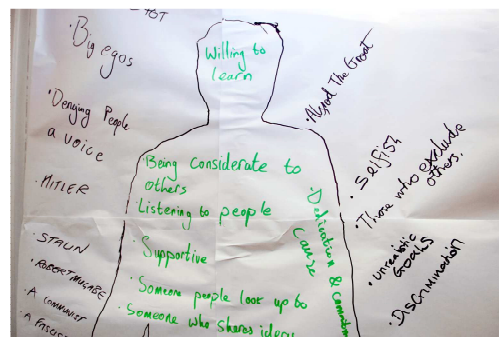 · Big egos
· Denying People
a voice
· HITLER
· STALIN
· ROBERT MUGABE
· A COMMUNIST
· A FASCIS
Willing to
learn
· Being considerate to
others
· Listening to people
· Supportive
· Someone people look up to
· Someone who shares
· Dedication & commitm
cause
The Great
· Selfish
· Those who exclude
others.
· unrealistic
Goals
· DISCRIMINATION